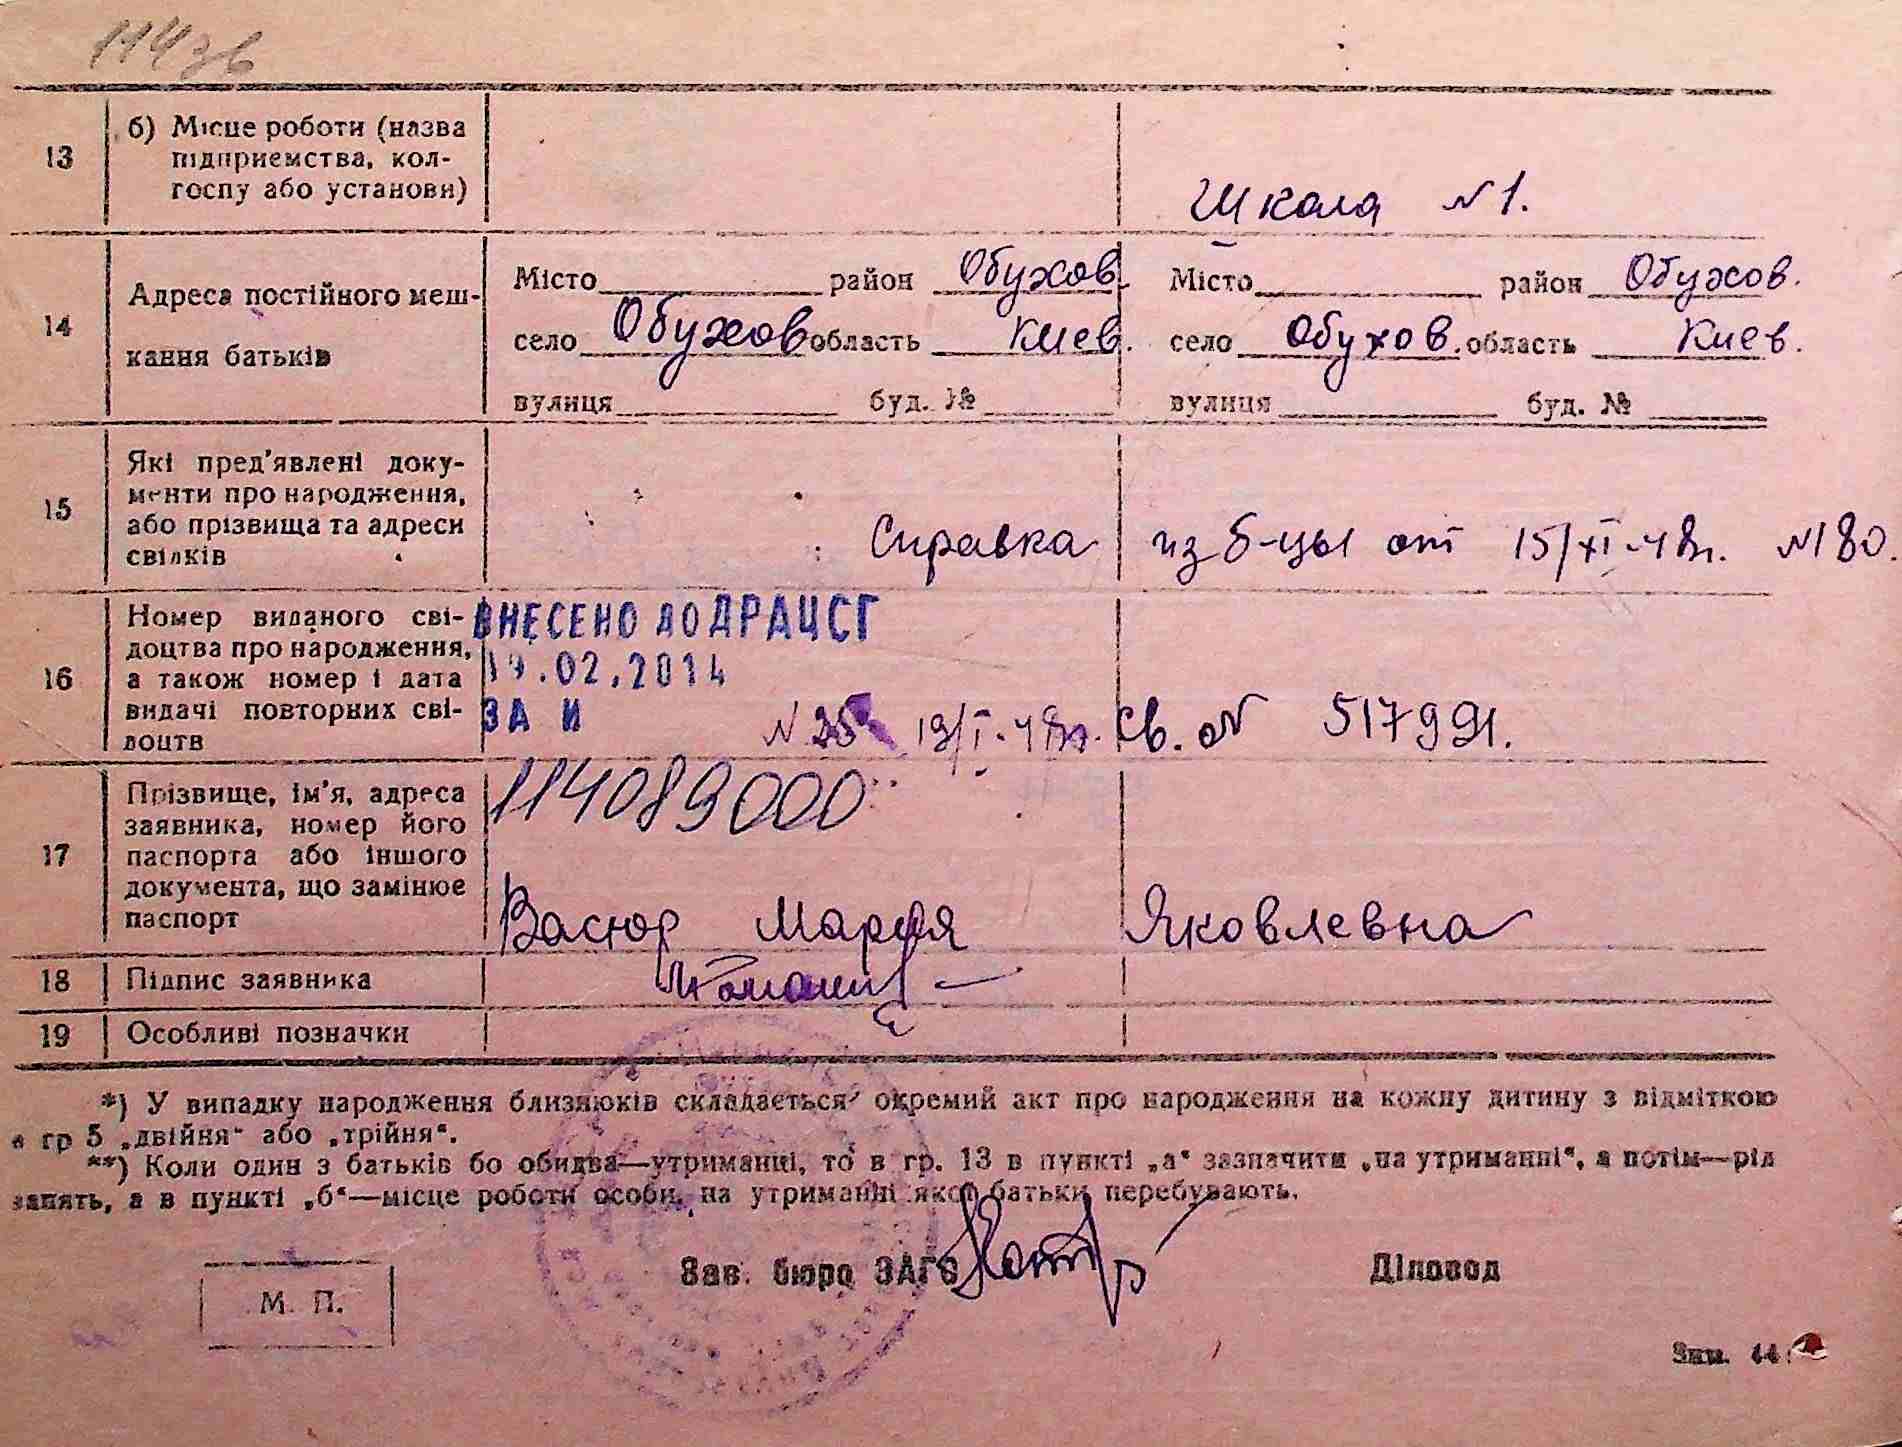 114зв
13 б) Місце роботи (назва
підприємства, кол-
госпу або установи)
Школа N1.
14 Адреса постійного меш-
кання батьків
Місто район Обухов. Місто район Обухов.
село Обухов область Киев. село Обухов. область Киев.
вулиця буд. № вулиця буд. №
15 Які пред'явлені доку-
менти про народження,
або прізвища та адреси
свідків
Справка из б-цы от 15/XI-48г. N180.
16 Номер виданого сві-
доцтва про народження,
а також номер і дата
видачі повторних сві-
доцтв
ВНЕСЕНО ДО ДРАЦСГ
.02.2014
ЗА И
N 19/I-48г. Св. N 517991.
17 Прізвище, ім'я, адреса
заявника, номер його
паспорта або іншого
документа, що замінює
паспорт
114089000
Васюр Мария Яковлевна
18 Підпис заявника
19 Особливі позначки
*) У випадку народження близнюків складається окремий акт про народження на кожну дитину з відміткою
в гр 5 „двійня" або „трійня".
**) Коли один з батьків бо обидва—утриманці, то в гр. 13 в пункті „а" зазначити „на утриманні", а потім—рід
занять, а в пункті „б"—місце роботи особи, на утриманні якої батьки перебувають.
Зав. бюро ЗАГС Діловод
М. П.
Зам. 44